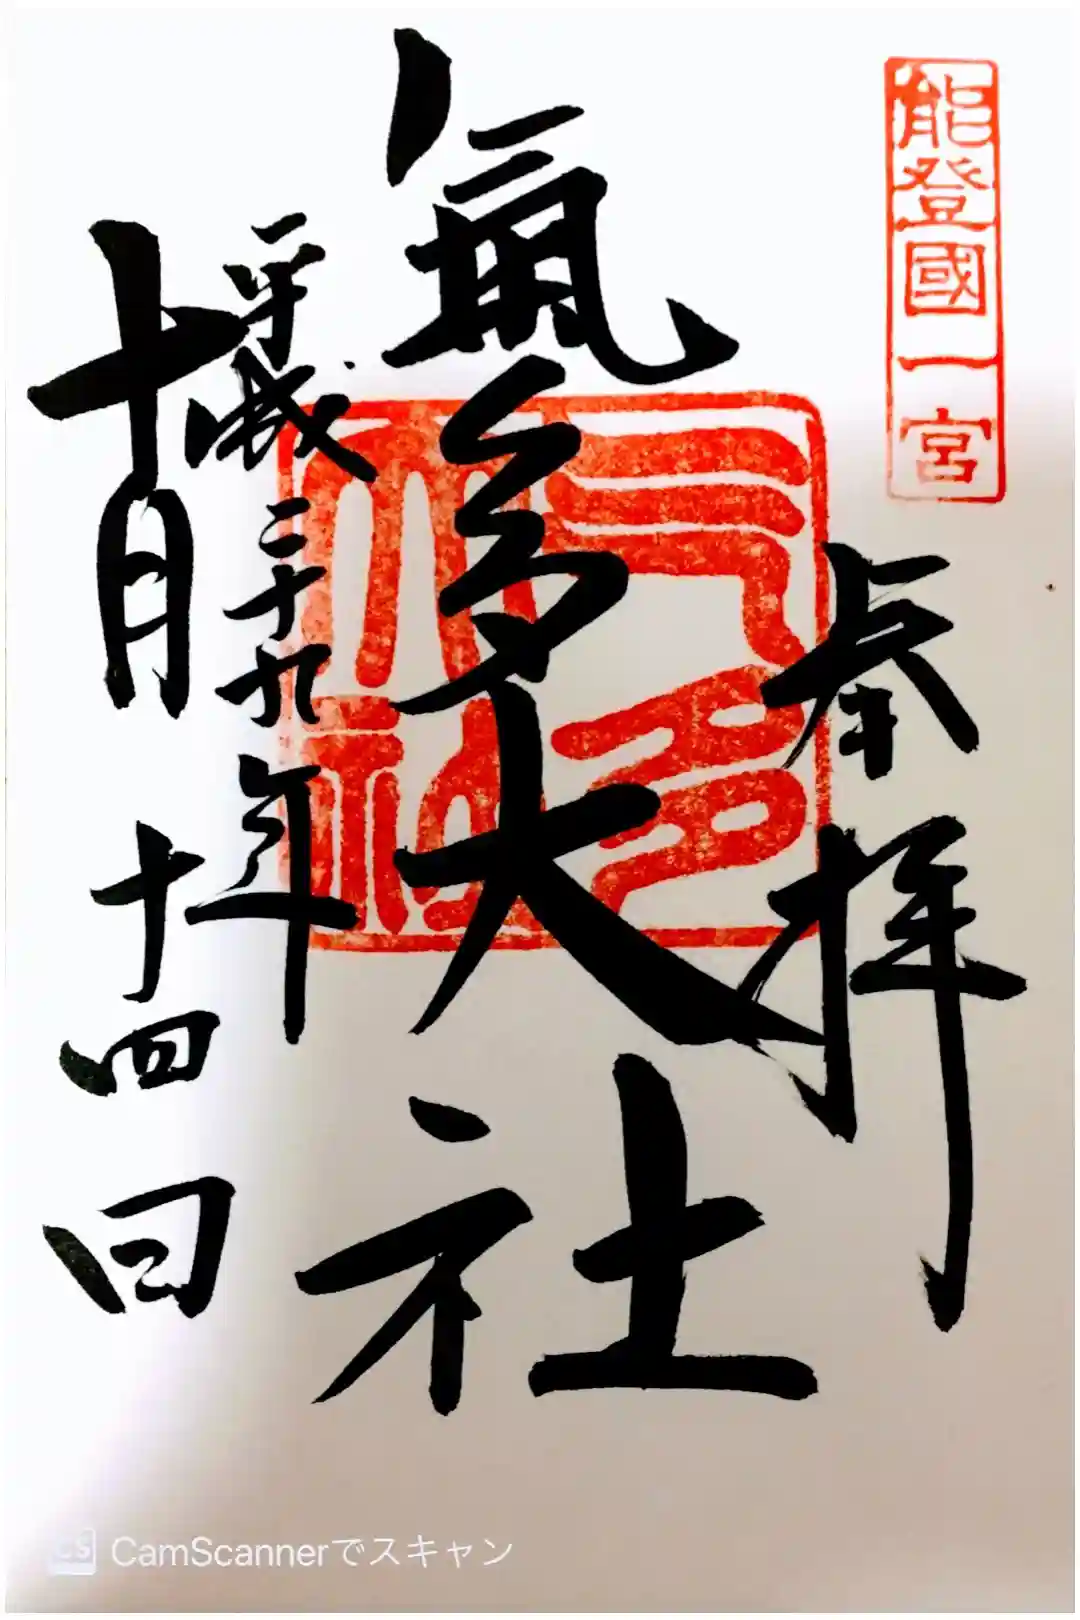 能登國一宮
奉拝
氣多大社
气多大社
平成二十九年
十月十四日
CS CamScannerでスキャン